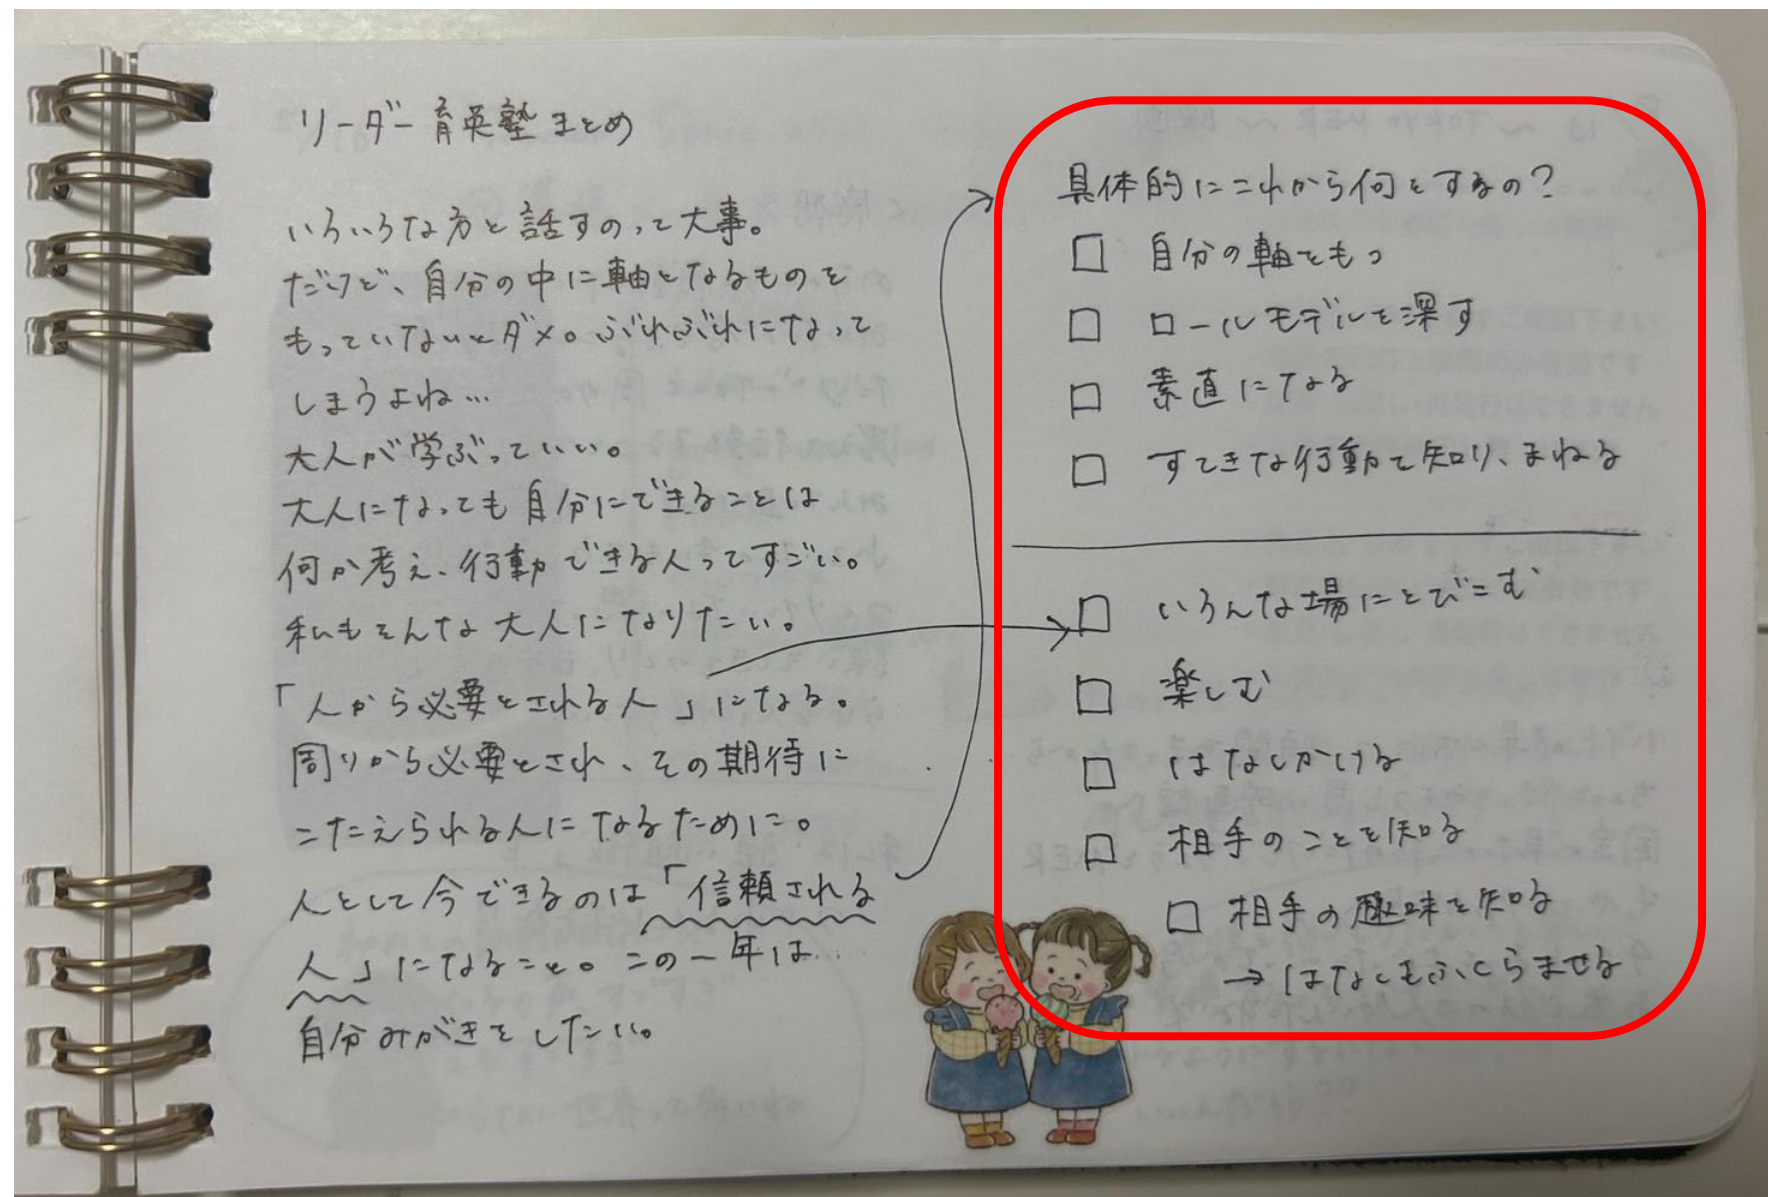 リーダー育英塾まとめ
いろいろな方と話すのって大事。
だけど、自分の中に軸となるものを
もっていないとダメ。ぶれぶれになって
しまうよね…
大人が学ぶっていい。
大人になっても自分にできることは
何か考え、行動できる人ってすごい。
私もそんな大人になりたい。
「人から必要とされる人」になる。
周りから必要とされ、その期待に
こたえられる人になるために。
人として今できるのは「信頼される
人」になること。この一年は…
自分みがきをしたい。
具体的にこれから何をするの?
□ 自分の軸をもつ
□ ロールモデルを深す
□ 素直になる
□ すてきな行動を知り、まねる
□ いろんな場にとびこむ
□ 楽しむ
□ はなしかける
□ 相手のことを知る
□ 相手の趣味を知る
→はなしもふくらませる